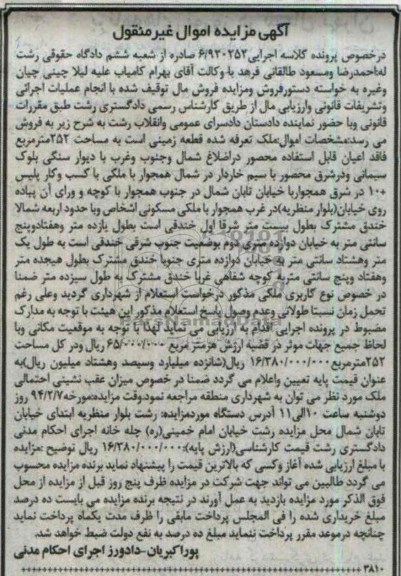 آگهی مزایده اموال غیرمنقول
درخصوص پرونده کلاسه اجرایی۶/۹۳۰۲۵۳ صادره از شعبه ششم دادگاه حقوقی رشت
له:احمدرضا ومسعود طالقانی فرهد با وکالت آقای بهرام کامیاب علیه لیلا چینی چیان
وغیره به خواسته دستورفروش ومزایده فروش مال توقیف شده با انجام عملیات اجرائی
وتشریفات قانونی وارزیابی مال از طریق کارشناس رسمی دادگستری رشت طبق مقررات
قانونی وبا حضور نماینده دادستان دادسرای عمومی وانقلاب رشت به شرح زیر به فروش
می رسد:مشخصات اموال:ملک تعرفه شده قطعه زمینی است به مساحت ۲۵۲مترمربع
فاقد اعیان قابل استفاده محصور دراضلاع شمال وجنوب وغرب با دیوار سنگی بلوک
سیمانی ودرشرق محصور با سیم خاردار در شمال همجوار با ملکی با کسب وکار پلیس
+۱۰ در شرق همجوربا خیابان تابان شمال در جنوب همجوار با کوچه و ورای آن پیاده
روی خیابان(بلوار منظریه)در غرب همجوار با ملکی مسکونی اشخاص وبا حدود اربعه شمالا
خندق مشترک بطول بیست متر شرقا اول خندقی است بطول یازده متر وهفتادوپنج
سانتی متر به خیابان دوازده متری دوم بوضعیت جنوب شرقی خندقی است به طول یک
متر وهشتاد سانتی متر به خیابان دوازده متری جنوبا خندق مشترک بطول هیجده متر
وهفتاد وپنج سانتی متربه کوچه شفاهی غربا خندق مشترک به طول سیزده متر ضمنا
در خصوص نوع کاربری ملکی مذکور درخواست استعلام از شهرداری گردید وعلی رغم
تحمل زمان نسبتا طولانی وعدم وصول پاسخ استعلام مذکور این هیئت با توجه به مدارک
مضبوط در پرونده اجرایی اقدام به ارزیابی می نماید لهذا با توجه به موقعیت مکانی وبا
لحاظ جمیع جهات موثر در قضیه ارزش هرمترمربع ۶۵/۰۰۰/۰۰۰ ریال ودر کل مساحت
۲۵۲مترمربع ۱۶/۳۸۰/۰۰۰/۰۰۰ ریال(شانزده میلیارد وسیصد وهشتاد میلیون ریال)به
عنوان قیمت پایه تعیین واعلام می گردد ضمنا در خصوص میزان عقب نشینی احتمالی
ملک مورد نظر می توان به شهرداری منطقه مراجعه نمود.وقت مزایده:مورخه۹۴/۲/۷ روز
دوشنبه ساعت ۱۰الی۱۱ آدرس دستگاه موردمزایده: رشت بلوار منظریه ابتدای خیابان
تابان شمال محل مزایده رشت خیابان امام خمینی(ره) چله خانه اجرای احکام مدنی
دادگستری رشت قیمت کارشناسی(ارزش پایه):۱۶/۳۸۰/۰۰۰/۰۰۰ ریال توضیح :مزایده
با مبلغ ارزیابی شده آغاز وکسی که بالاترین قیمت را پیشنهاد نماید برنده مزایده محسوب
می گردد طالبین می تواند جهت شرکت در مزایده ظرف پنج روز قبل از مزایده از محل
فوق الذکر مورد مزایده بازدید به عمل آورند در نتیجه برنده مزایده می بایست ده درصد
مبلغ خریداری شده را فی المجلس پرداخت مابقی را ظرف مدت یکماه پرداخت نماید
چنانچه درموعد مقرر پرداخت ننماید مبلغ ده درصد به نفع دولت ضبط خواهد شد.
پوراکبریان -دادورز اجرای احکام مدنی
۳۸۱۰